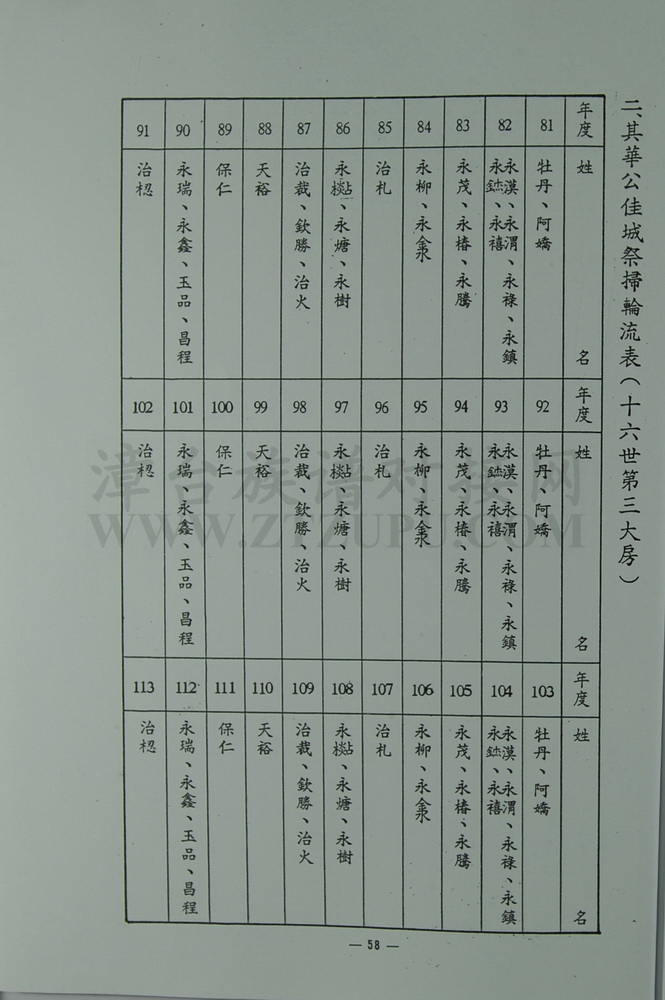 二、其華公佳城祭掃輪流表(十六世第三大房)
年度 姓名
81 牡丹、阿嬌
82 永漢、永渭、永祿、永鎮、永鉢、永禧
83 永茂、永椿、永騰
84 永柳、永淾
85 治札
86 永樹
87 治裁、欽勝、治火
88 天裕
89 保仁
90 永瑞、永鑫、玉品、昌程
91 治
年度 姓名
92 牡丹、阿嬌
93 永漢、永渭、永祿、永鎮、永禧
94 永茂、永椿、永騰
95 永柳
96 治札
97 永㷟、永樹
98 治裁、欽勝、治火
99 天裕
100 保仁
101 永瑞、永鑫、玉品、昌程
102 治
年度 姓名
103 牡丹、阿嬌
104 永漢、永渭、永祿、永鎮、永禧
105 永茂、永椿、永騰
106 永柳
107 治札
108 永樹
109 治裁、欽勝、治火
110 天裕
111 保仁
112 永瑞、永鑫、玉品、昌程
113 治
— 58 —
漳台族谱对接网
WWW.ZTZUPU.COM